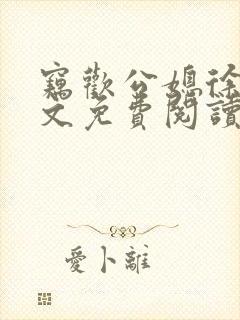 竊歡公媳徐
文免費閱讀
愛卜離